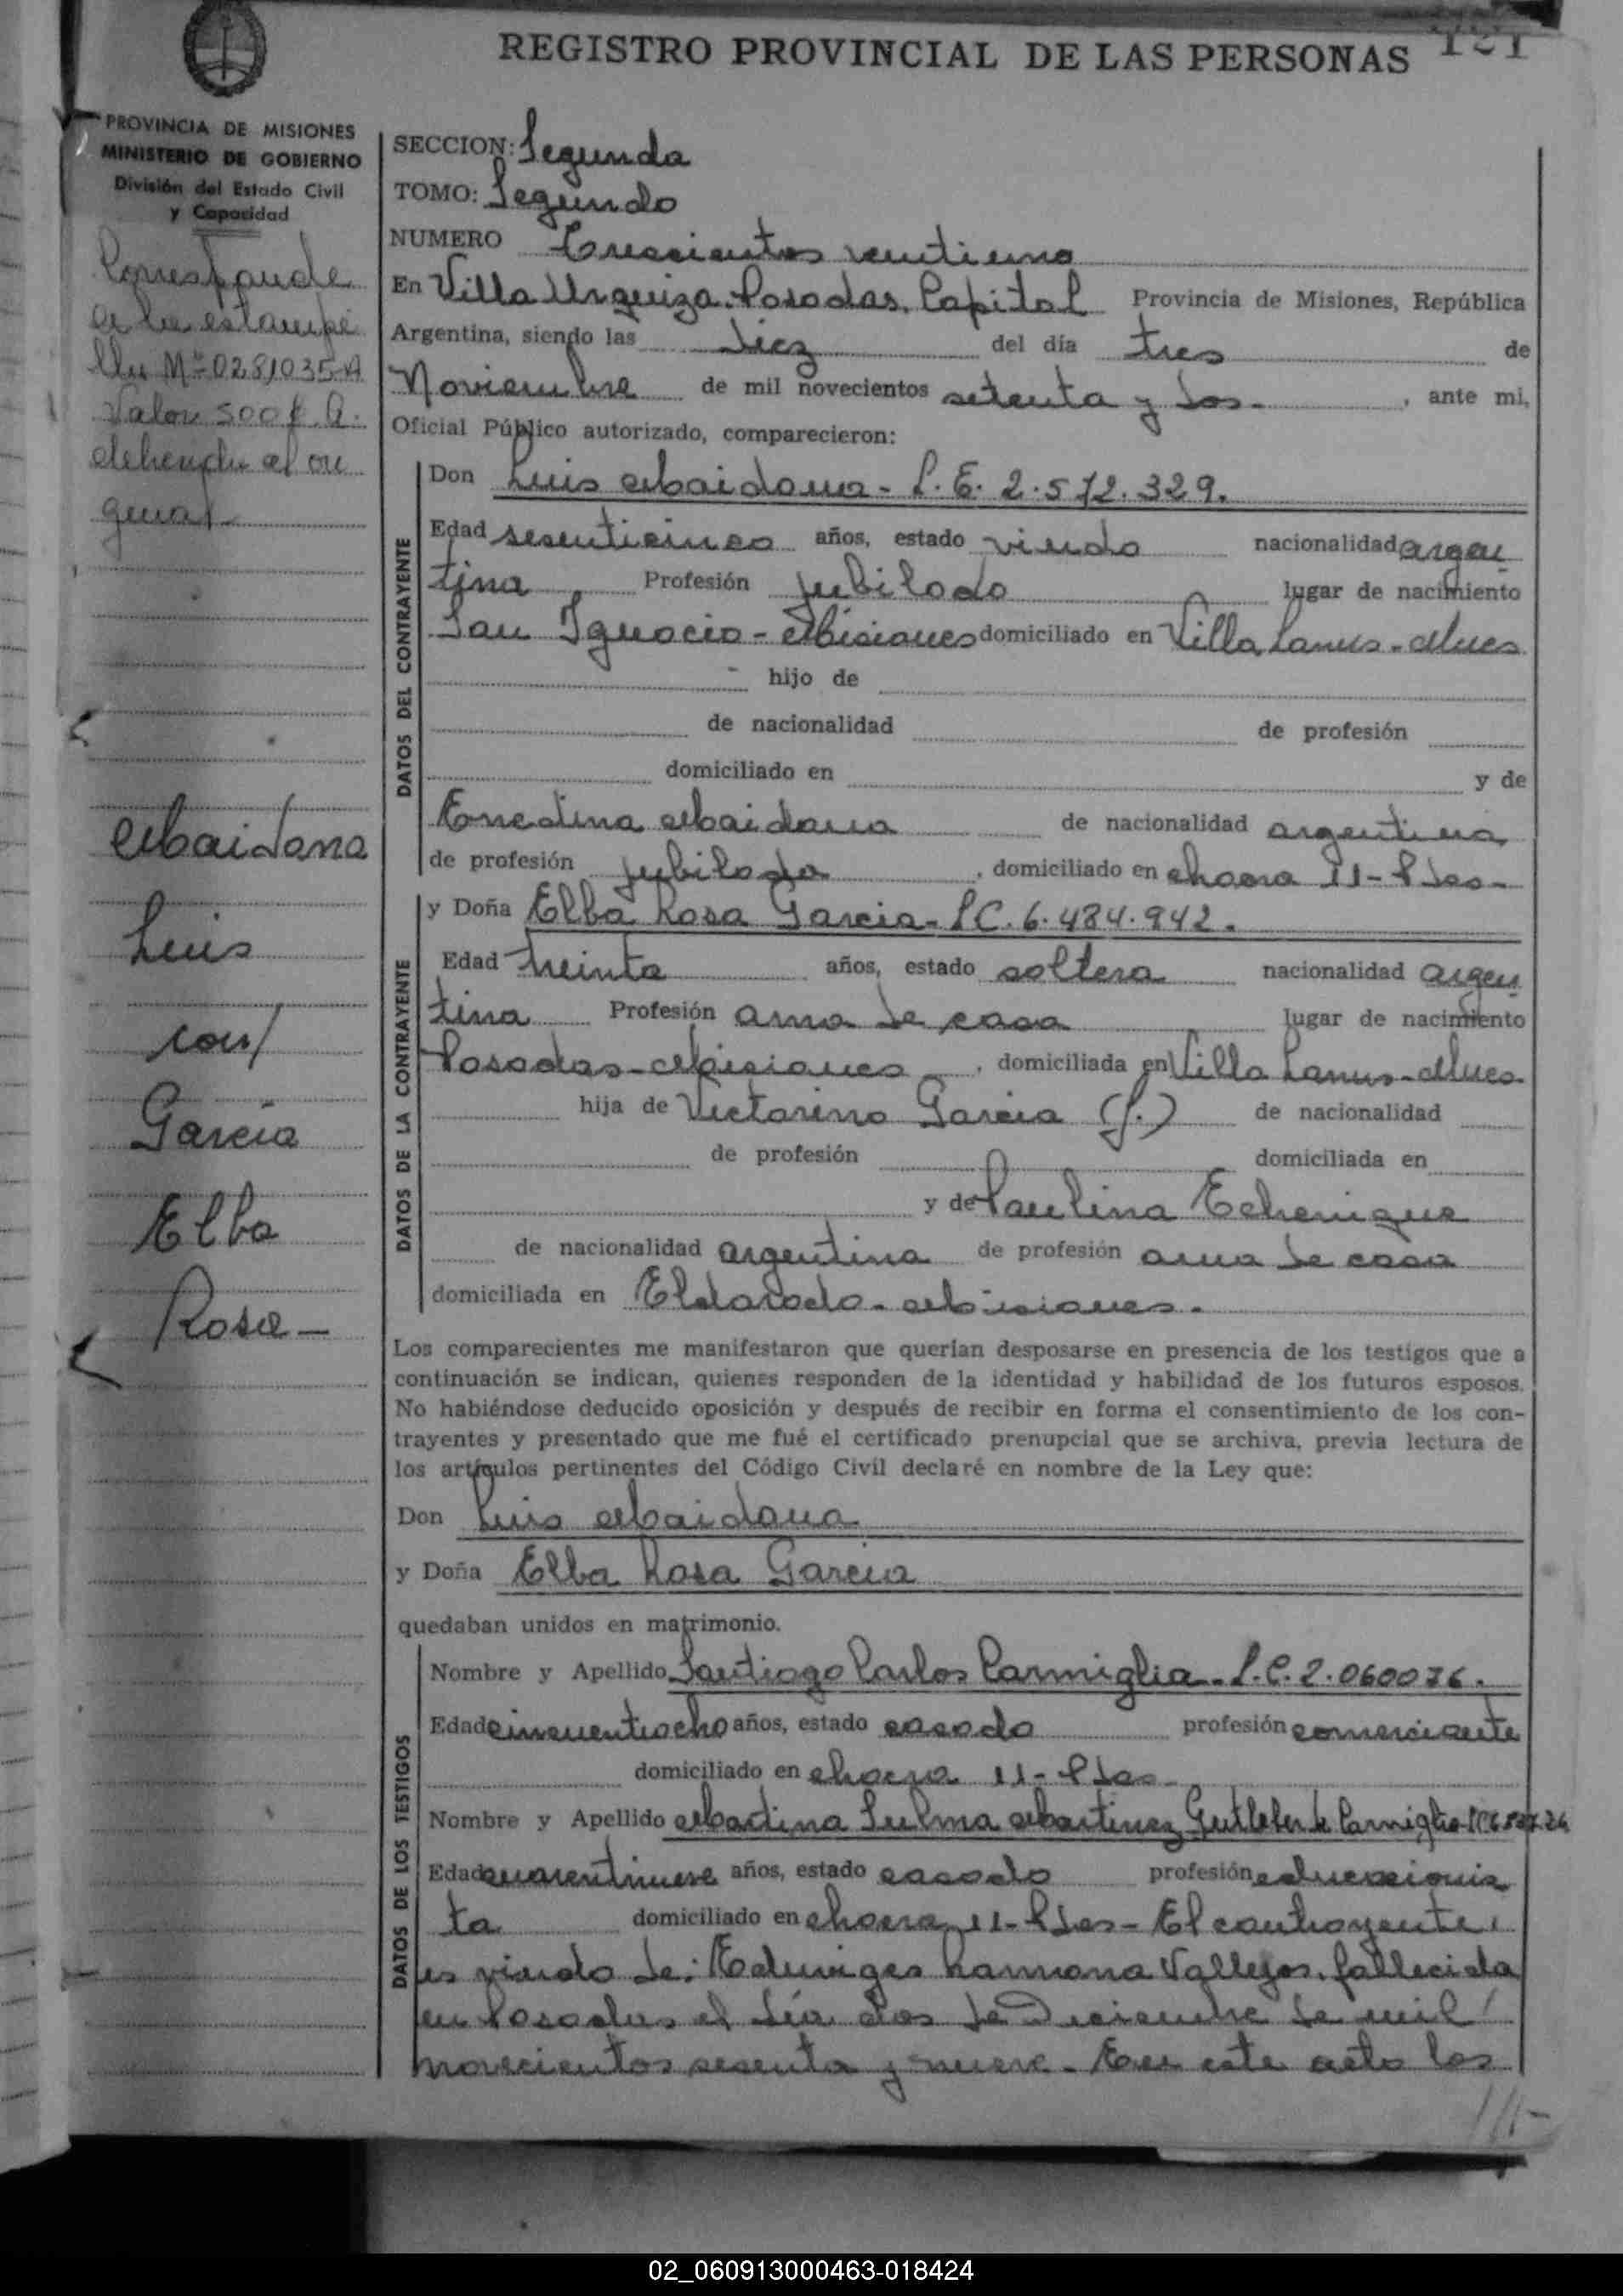 121
REGISTRO PROVINCIAL DE LAS PERSONAS
PROVINCIA DE MISIONES
MINISTERIO DE GOBIERNO
División del Estado Civil
y Capacidad
Corresponde
a la estampi
lla Nº 0281035-A
Valor 500 $.
adherida al ori
ginal
Maidana
Luis
con/
Garcia
Elba
Rosa-
SECCION: Segunda
TOMO: Segundo
NUMERO Trescientos veintiuno
En Villa Urquiza. Posadas, Capital Provincia de Misiones, República
Argentina, siendo las diez del día tres de
Noviembre de mil novecientos setenta y dos- , ante mi,
Oficial Público autorizado, comparecieron:
DATOS DEL CONTRAYENTE
Don Luis Maidana - L.E. 2.572.329.
Edad sesenticinco años, estado viudo nacionalidad argen
tina Profesión jubilado lugar de nacimiento
San Ignacio - Misiones domiciliado en Villa Lanus - Mnes
hijo de
de nacionalidad de profesión
domiciliado en y de
Enedina Maidana de nacionalidad argentina
de profesión jubilada , domiciliado en chacra 11 - Pdas-
DATOS DE LA CONTRAYENTE
y Doña Elba Rosa Garcia - LC. 6.484.942.
Edad treinta años, estado soltera nacionalidad argen
tina Profesión ama de casa lugar de nacimiento
Posadas - Misiones , domiciliada en Villa Lanus - Mnes.
hija de Victorino Garcia (f.) de nacionalidad
de profesión domiciliada en
y de Paulina Echenique
de nacionalidad argentina de profesión ama de casa
domiciliada en Eldorado - Misiones.
Los comparecientes me manifestaron que querían desposarse en presencia de los testigos que a
continuación se indican, quienes responden de la identidad y habilidad de los futuros esposos.
No habiéndose deducido oposición y después de recibir en forma el consentimiento de los con-
trayentes y presentado que me fué el certificado prenupcial que se archiva, previa lectura de
los artículos pertinentes del Código Civil declaré en nombre de la Ley que:
Don Luis Maidana
y Doña Elba Rosa Garcia
quedaban unidos en matrimonio.
DATOS DE LOS TESTIGOS
Nombre y Apellido Santiago Carlos Carmiglia - L.E. 2.060076.
Edad cincuentiocho años, estado casado profesión comerciante
domiciliado en chacra 11 - Pdas
Nombre y Apellido Martina Sulma Martinez Gutleber de Carmiglia
Edad cuarentinueve años, estado casado profesión educacionis
ta domiciliado en chacra 11 - Pdas - El contrayente,
es viudo de: Eduviges Rammona Vallejos, fallecida
en Posadas el día dos de Diciembre de mil
novecientos sesenta y nueve - En este acto los
///-
02_060913000463-018424